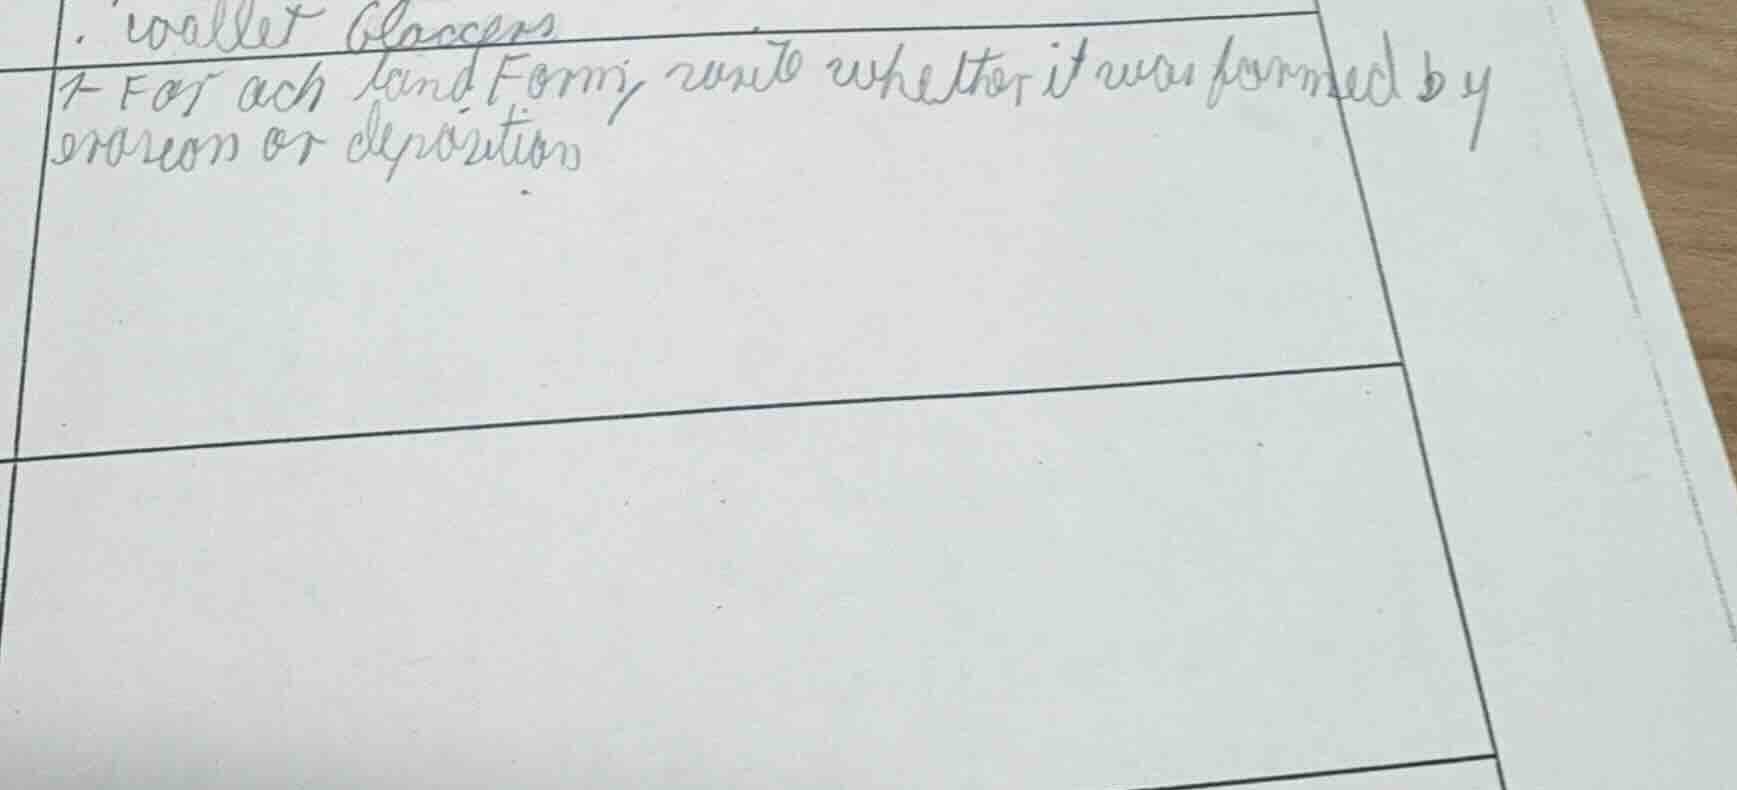 . wallet Glaccers
1- For ach land Form, write whether it was formed by
eroseon or deposition